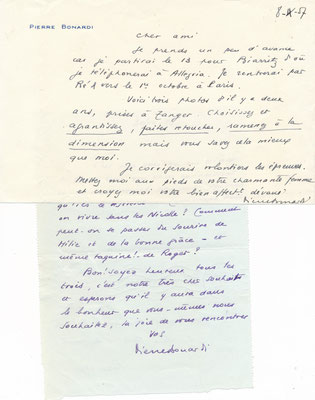 PIERRE BONARDI
8-X-57
Cher ami
Je prends un peu d'avance
car je partirai le 13 pour Biarritz d'où
je téléphonerai à Je rentrerai par
Ré vers le 1er octobre à Paris.
Voici trois photos d'il y a deux
ans, prises à Tanger. Choisissez et
agrandissez, faites retouches, ramenez à la
dimension mais vous savez cela mieux
que moi.
Je corrigerais volontiers les épreuves.
Mettez moi aux pieds de votre charmante femme
et croyez moi votre bien affect! dévoué
Pierre Bonardi
on vivre sans les Nicolle? Comment
peut-on se passer du sourire de
et de la bonne grâce - et
même taquine! - de Roger?
Bon! Soyez heureux tous les
trois, c'est notre très cher souhait
et espérons qu'il y aura dans
le bonheur que vous-mêmes nous
souhaitez, la joie de vous rencontrer
Vos
Pierre Bonardi